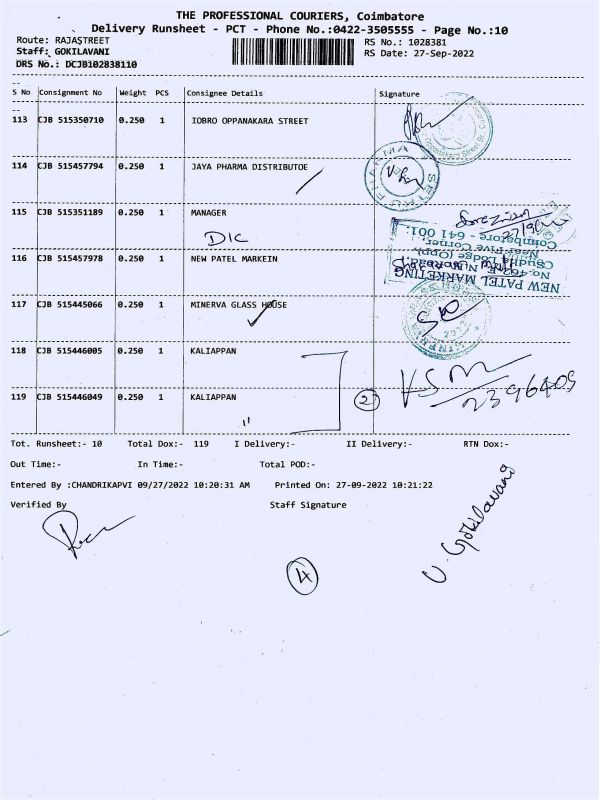 THE PROFESSIONAL COURIERS, Coimbatore
Delivery Runsheet - PCT - Phone No.:0422-3505555 - Page No.:10
Route: RAJASTREET
RS No.: 1028381
Staff: GOKILAVANI
RS Date: 27-Sep-2022
DRS No.: DCJB102838110
S No Consignment No Weight PCS Consignee Details Signature
113 CJB 515350710 0.250 1 IOBRO OPPANAKARA STREET
114 CJB 515457794 0.250 1 JAYA PHARMA DISTRIBUTOE
115 CJB 515351189 0.250 1 MANAGER
DIC
116 CJB 515457978 0.250 1 NEW PATEL MARKEIN
NEW PATEL MARKETING
Near Five Corner,
Coimbatore - 641 001.
117 CJB 515445066 0.250 1 MINERVA GLASS HOUSE
118 CJB 515446005 0.250 1 KALIAPPAN
2
VSM
2396409
119 CJB 515446049 0.250 1 KALIAPPAN
"
Tot. Runsheet:- 10 Total Dox:- 119 I Delivery:- II Delivery:- RTN Dox:-
Out Time:- In Time:- Total POD:-
Entered By :CHANDRIKAPVI 09/27/2022 10:20:31 AM Printed On: 27-09-2022 10:21:22
Verified By Staff Signature
U. Gokilavani
4